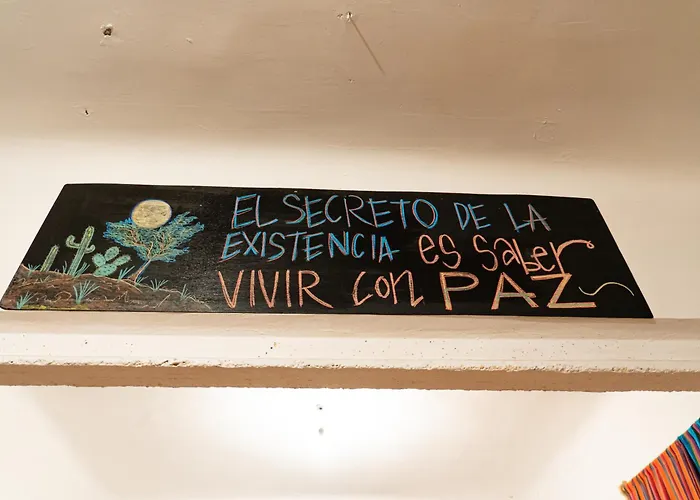 EL SECRETO DE LA
EXISTENCIA es saber
VIVIR con PAZ